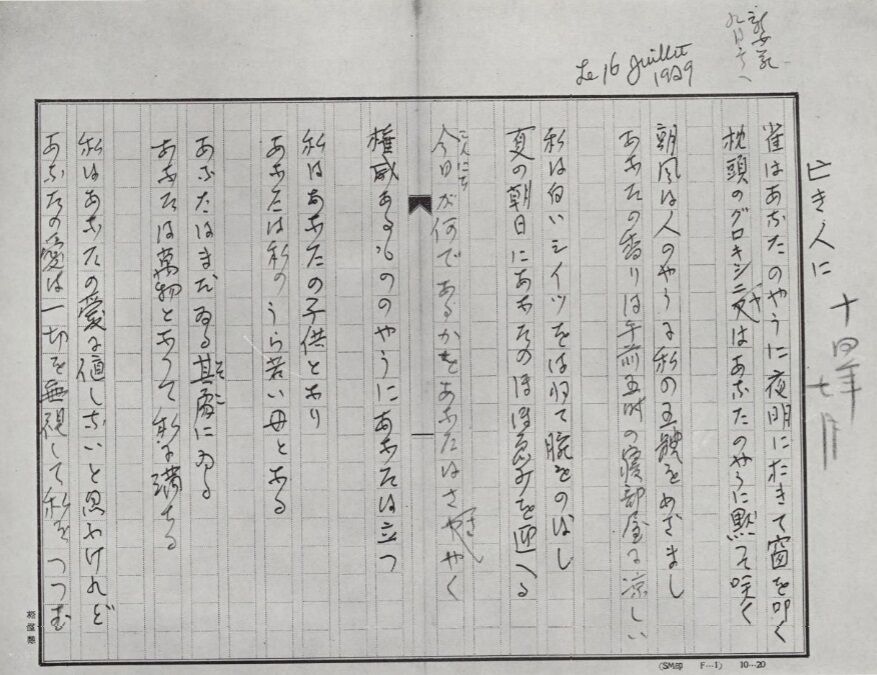 新女苑
九月号へ
Le 16 Juillet
1939
十四年七月
亡き人に
雀はあなたのやうに夜明におきて窗を叩く
枕頭のグロキシニヤはあなたのやうに黙つて咲く
朝風は人のやうに私の五體をめざまし
あなたの香りは午前五時の寝部屋に涼しい
私は白いシイツをはねて腕をのばし
夏の朝日にあなたのほほゑみを迎へる
今日が何であるかをあなたはささやく
こんにち
権威あるもののやうにあなたは立つ
私はあなたの子供となり
あなたは私のうら若い母となる
あなたはまだゐる其處にゐる
そこ
あなたは萬物となつて私に満ちる
私はあなたの愛に値しないと思ふけれど
あなたの愛は一切を無視して私をつつむ
(SM印 F…1) 10…20